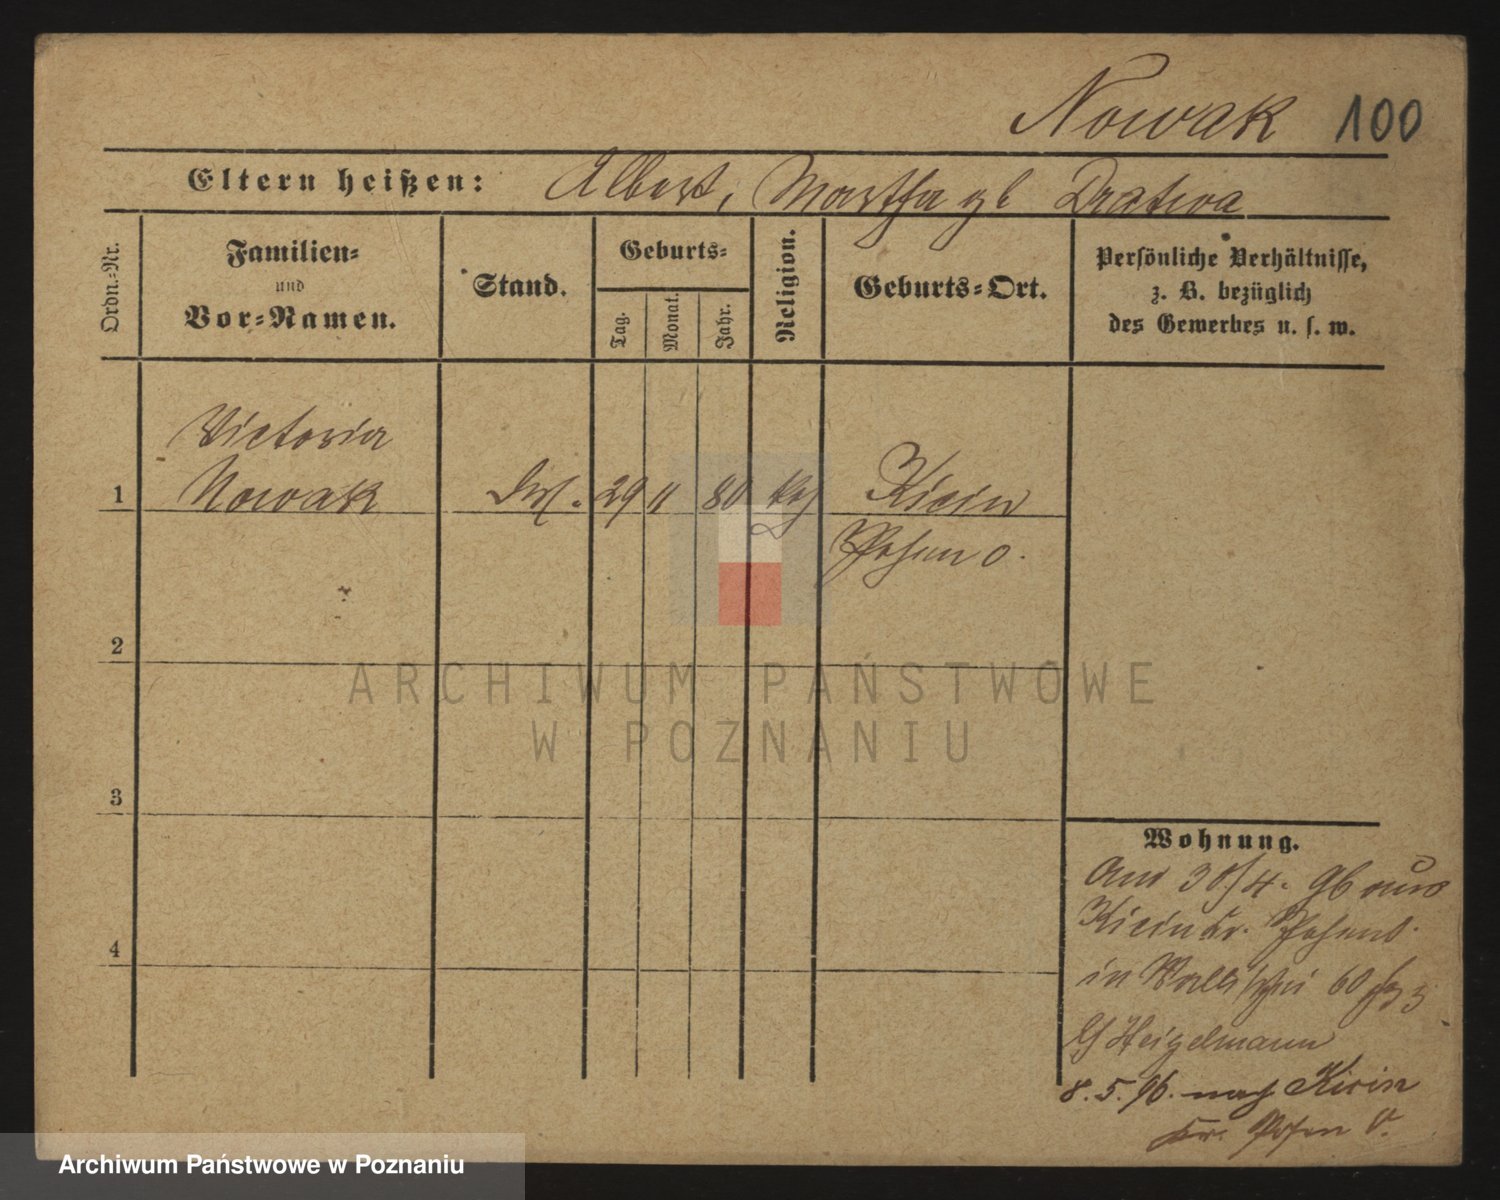 Nowak 100
Eltern heißen: Albert, Martha gb Dratwa
Ordn.-Nr.
Familien-
und
Vor-Namen.
Stand.
Geburts-
Tag.
Monat.
Jahr.
Religion.
Geburts-Ort.
Persönliche Verhältnisse,
z. B. bezüglich
des Gewerbes u. s. w.
Victoria
1 Nowak 29 11 80 kath Kicin
Posen O.
2
3
4
Wohnung.
Am 30/4. 96 aus
Kicin Kr. Posen O.
in Wallischei 60
b/ Heigelmann
8.5.96. nach Kicin
Kr. Posen O.
ARCHIWUM PAŃSTWOWE
W POZNANIU
Archiwum Państwowe w Poznaniu